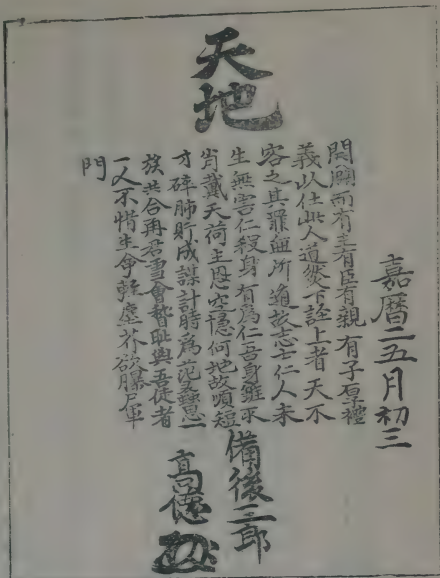 天地
嘉暦二五月初三
開闢而有主有臣有親有子厚禮
義以仕此人道然下誣上者天不
容之其罪無所逃故志士仁人未
生無害仁殺身有為仁吾身雖不
肖戴天荷主恩空隱何地故頃短
才碎肺貯成謀計時爲范蠡思一
族共合再君雪會稽恥與吾徒者
一人不惜生命輕塵芥欲曝尸軍
門
備後三郎
高德